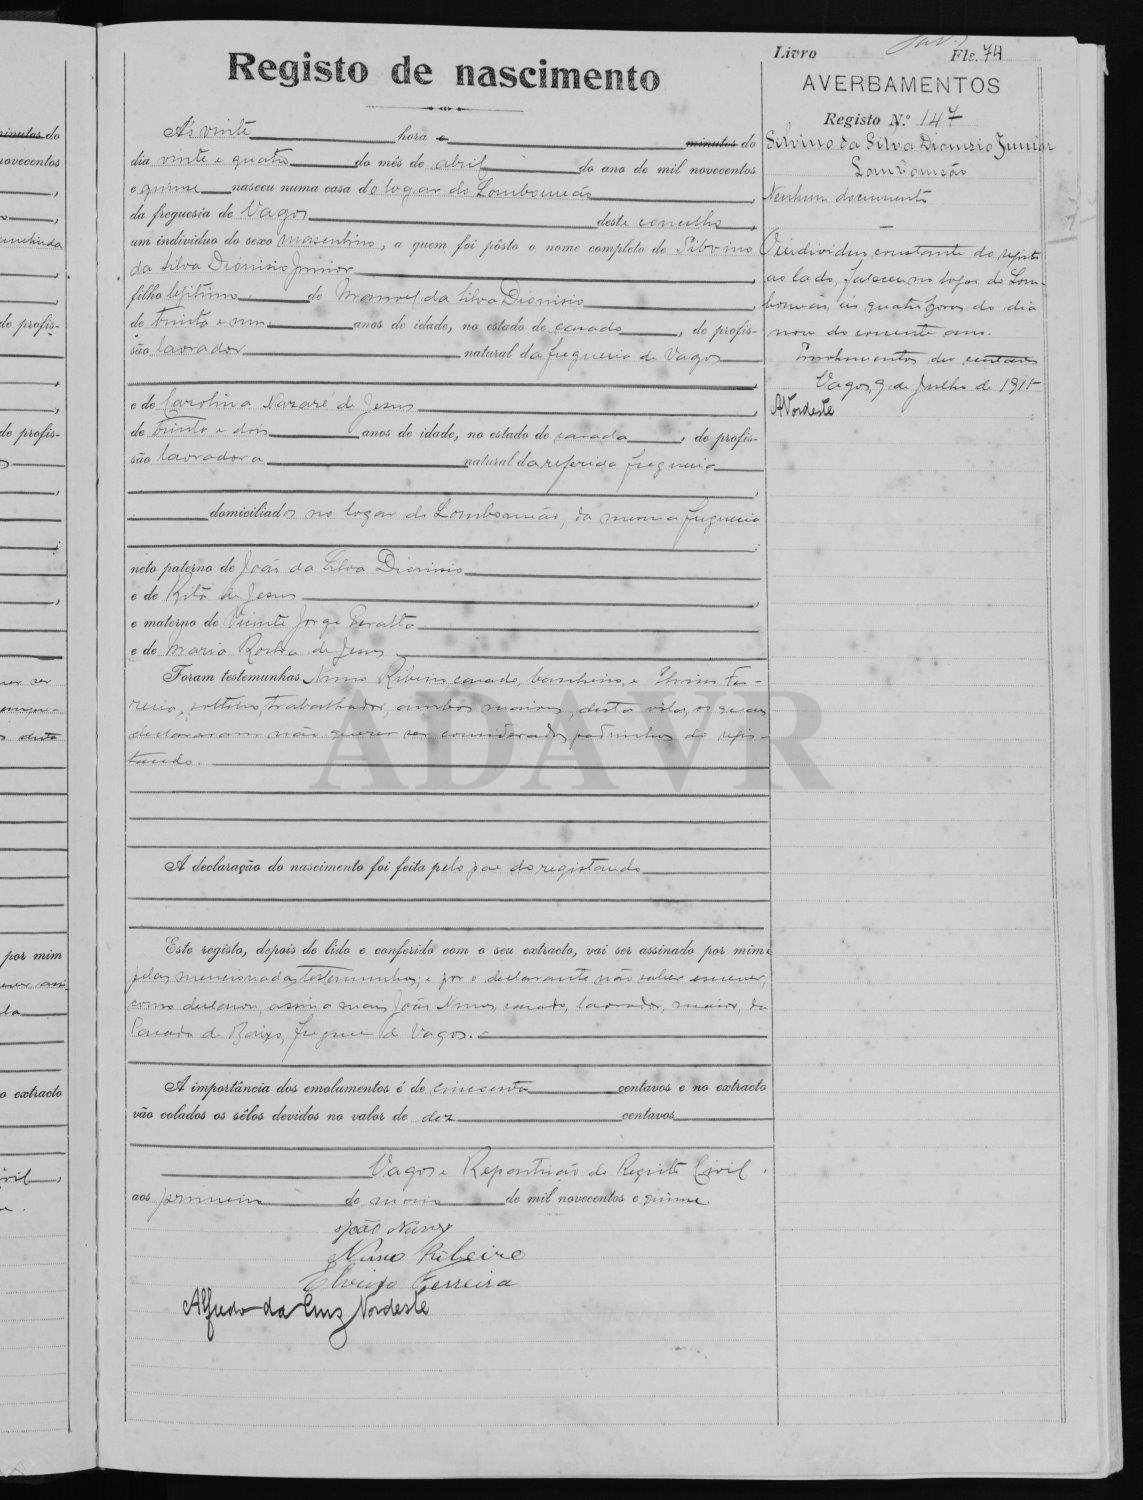 Livro Fls. 74
Registo de nascimento
AVERBAMENTOS
Registo N.º 147
Silvino da Silva Dionisio Junior
Lombomeão
Nenhum documento
O individuo constante do registo
ao lado, faleceu no logar de Lom-
bomeão, ás quatro horas do dia
nove do corrente ano.
Emolumentos dez centavos
Vagos, 9 de Julho de 1915
ANordeste
A's vinte hora e minutos do
dia vinte e quatro do mês de abril do ano de mil novecentos
e quinse nasceu numa casa do logar do Lombomeão,
da freguesia de Vagos deste concelho,
um individuo do sexo masculino, a quem foi pôsto o nome completo de Silvino
da Silva Dionisio Junior,
filho legitimo de Manoel da Silva Dionisio,
de trinta e um anos de idade, no estado de casado, de profis-
são lavrador natural da freguesia de Vagos
e de Carolina Nazaré de Jesus,
de trinta e dois anos de idade, no estado de casada, de profis-
são lavradora natural da referida freguesia
domiciliados no logar de Lombomeão, da mesma freguesia
neto paterno de João da Silva Dionisio
e de Rita de Jesus,
e materno de Vicente Jorge
e de Maria Rosa de Jesus
Foram testemunhas Nuno Ribeiro casado, e Elvino Fer-
reira, solteiro, trabalhador, ambos maiores, desta vila, os quais
declararam não querer ser considerados padrinhos do regis-
tando.
A declaração do nascimento foi feita pelo pae do registando
Este registo, depois de lido e conferido com o seu extracto, vai ser assinado por mim e
pelas mencionadas testemunhas, e por o declarante não saber escrever,
como declarou, assina mais João Nunes, casado, lavrador, maior, da
de Baixo, freguesia de Vagos.
A importância dos emolumentos é de cincoenta centavos e no extracto
vão colados os sêlos devidos no valor de dez centavos
Vagos e Repartição do Registo Civil.
aos primeiro de maio de mil novecentos e quinse.
João Nunes
Nuno Ribeiro
Elvino Ferreira
Alfredo da Cruz Nordeste
ADAVR